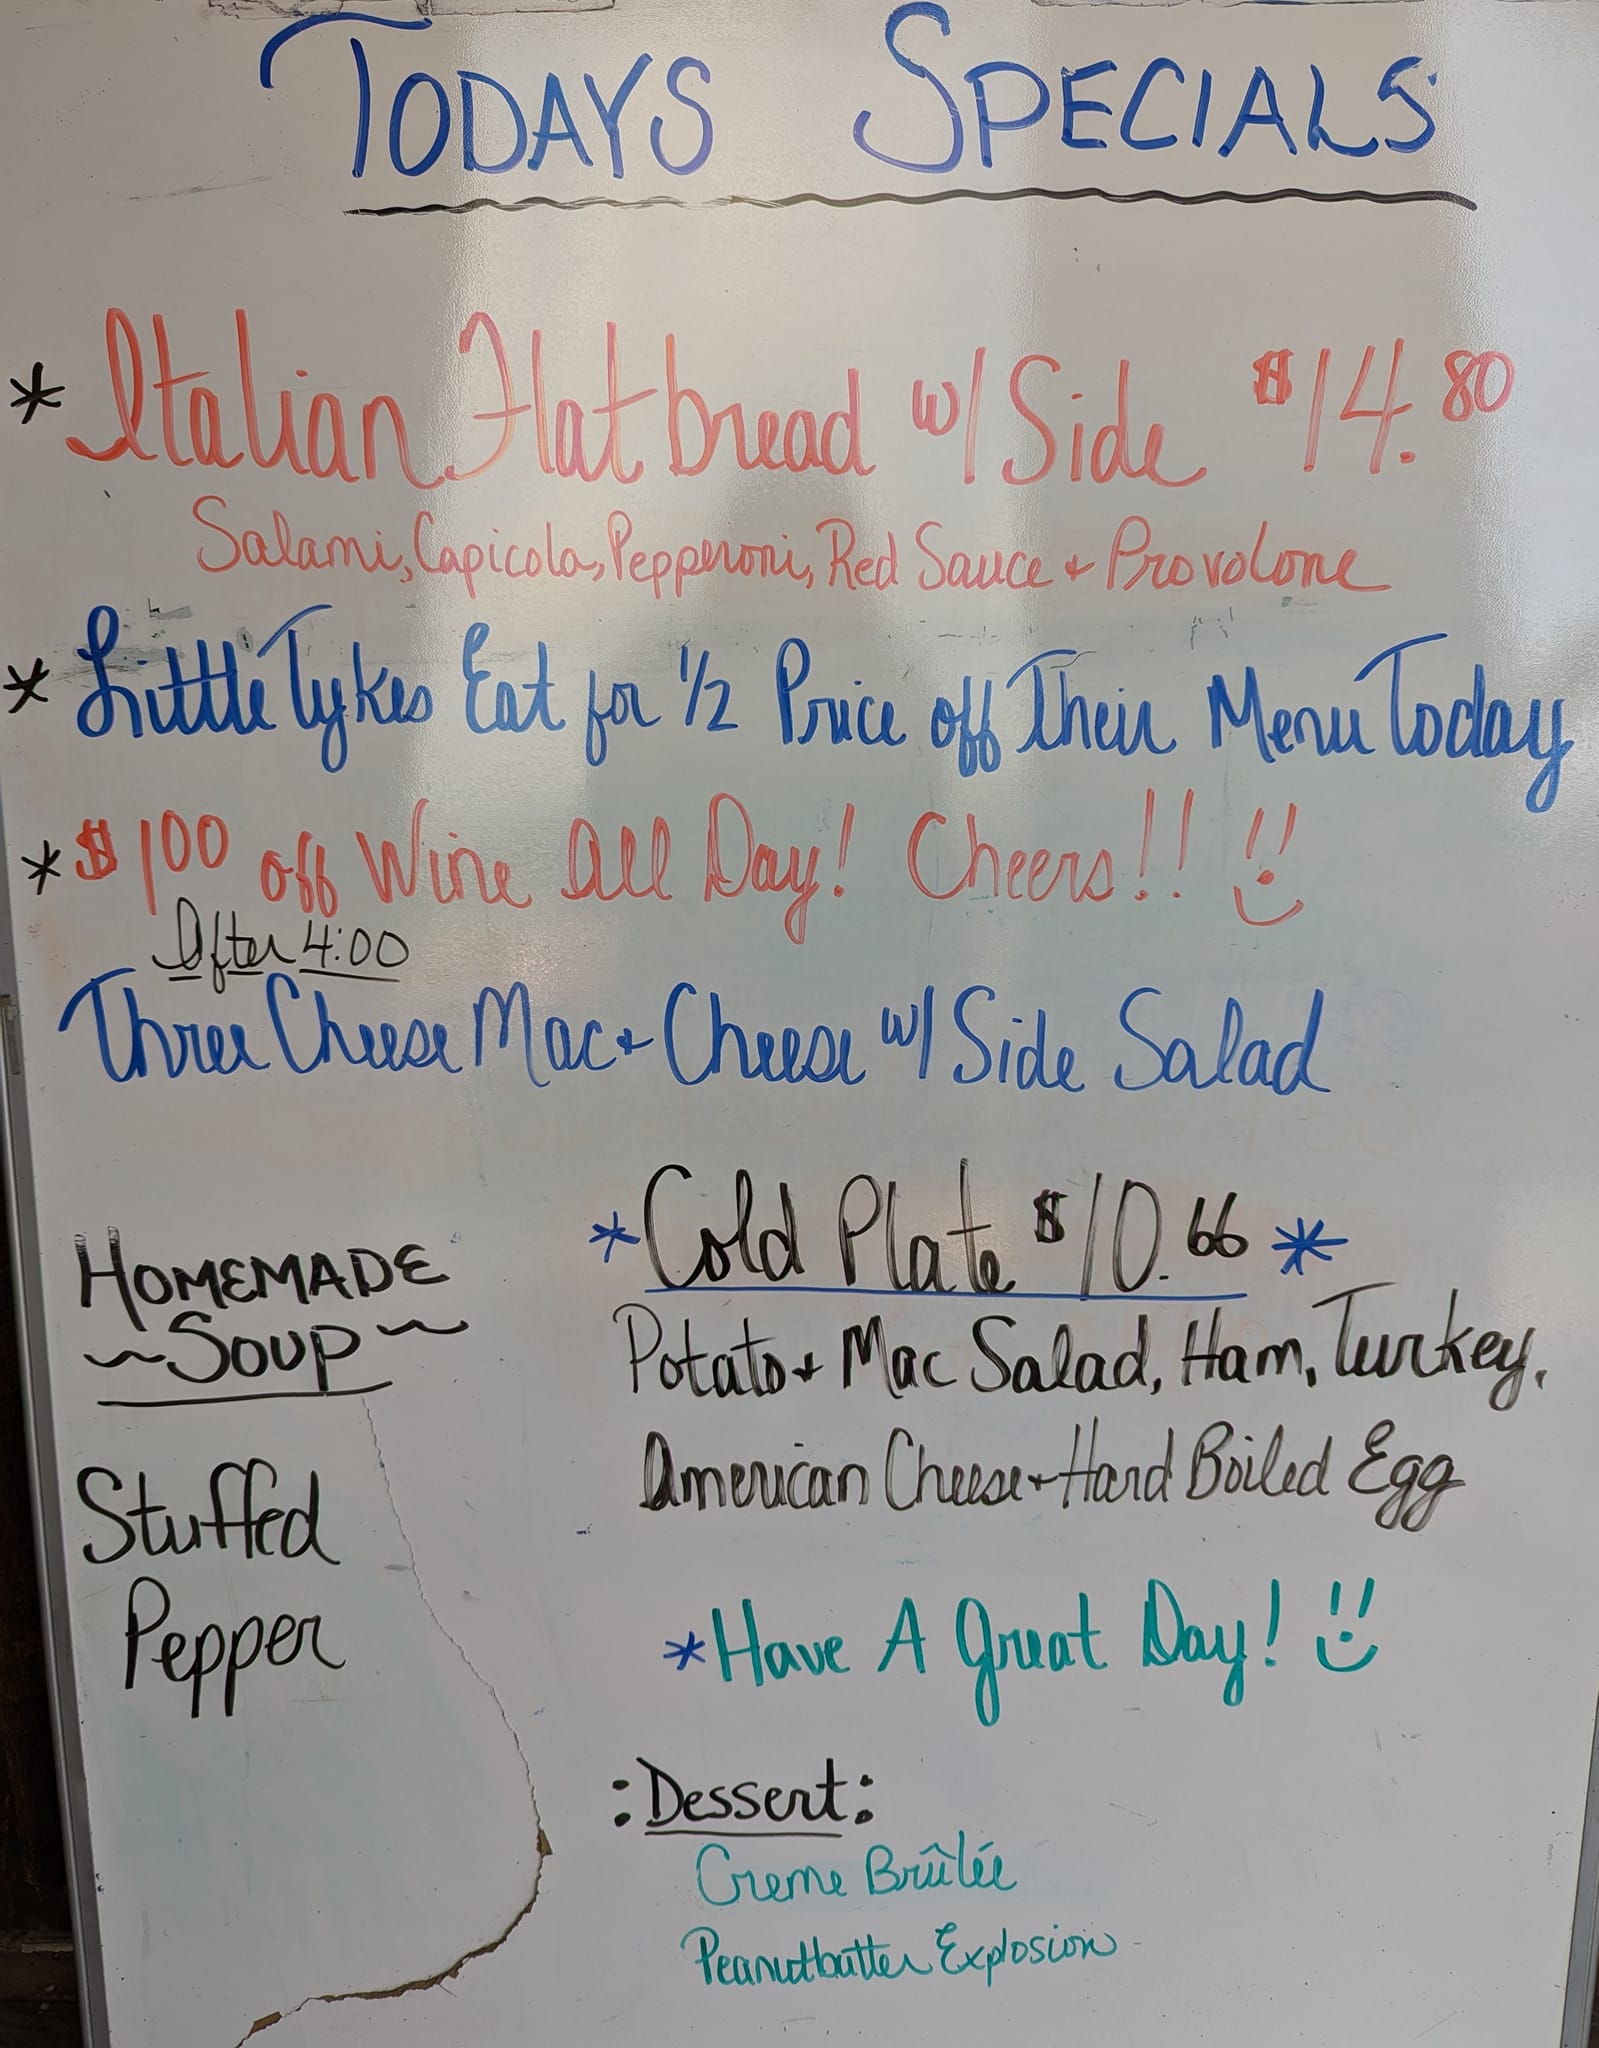 TODAYS SPECIALS
* Italian Flatbread w/ Side $14.80
Salami, Capicola, Pepperoni, Red Sauce + Provolone
* Little Tykes Eat for 1/2 Price off Their Menu Today
* $1 00 off Wine All Day! Cheers!!
After 4:00
Three Cheese Mac + Cheese w/ Side Salad
HOMEMADE
~SOUP~
Stuffed
Pepper
* Cold Plate $10.66 *
Potato + Mac Salad, Ham, Turkey,
American Cheese + Hard Boiled Egg
* Have A Great Day!
:Dessert:
Creme Brûlée
Peanutbutter Explosion